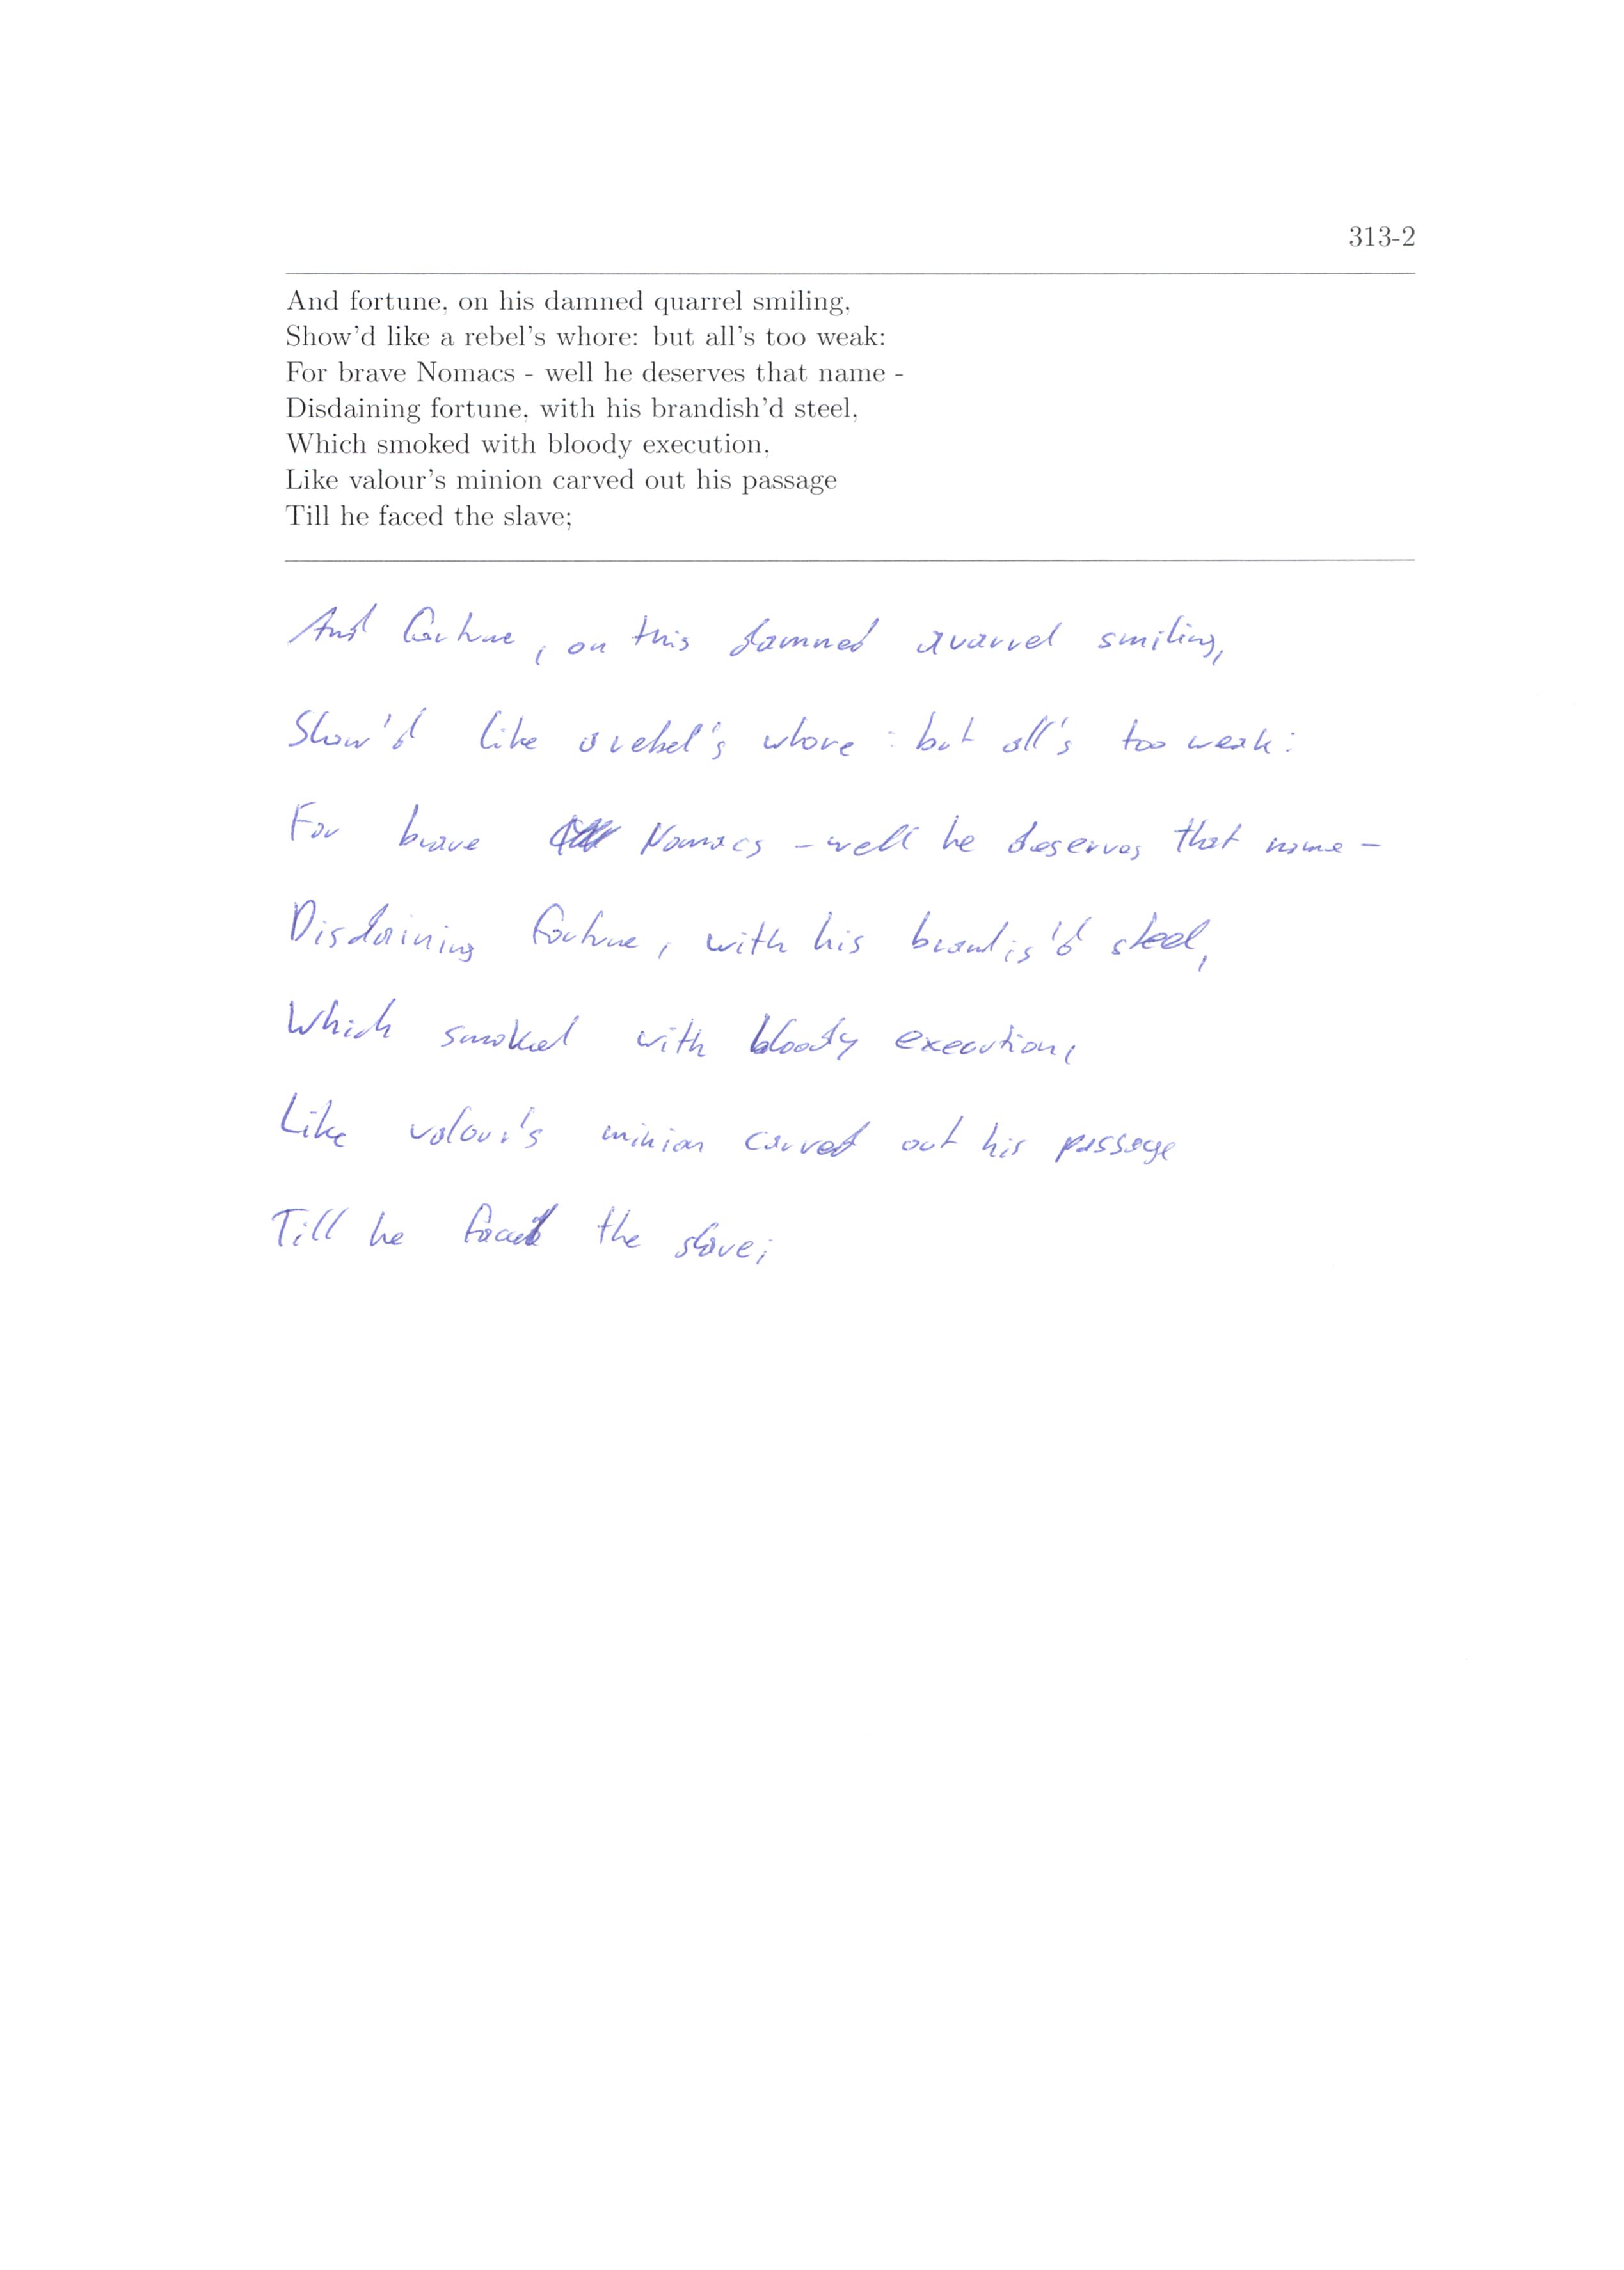 313-2
And fortune, on his damned quarrel smiling,
Show'd like a rebel's whore: but all's too weak:
For brave Nomacs - well he deserves that name -
Disdaining fortune, with his brandish'd steel,
Which smoked with bloody execution,
Like valour's minion carved out his passage
Till he faced the slave;
And fortune, on this damned quarrel smiling,
Show'd like a rebel's whore : but all's too weak:
For brave Nomacs - well he deserves that name -
Disdaining fortune, with his brandis'd steel,
Which smoked with bloody execution,
Like valour's minion carved out his passage
Till he faced the slave;